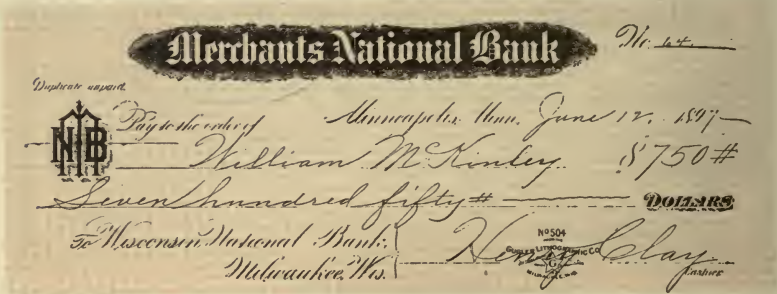 Merchants National Bank No. 64
Duplicate unpaid.
Minneapolis, Minn. June 12, 1897
NTB
Pay to the order of
William McKinley $750#
Seven hundred fifty# DOLLARS
To Wisconsin National Bank,
Milwaukee, Wis.
Nº504
GUGLER LITHOGRAPHIC CO
G
MILWAUKEE, WIS
Henry Clay
Cashier